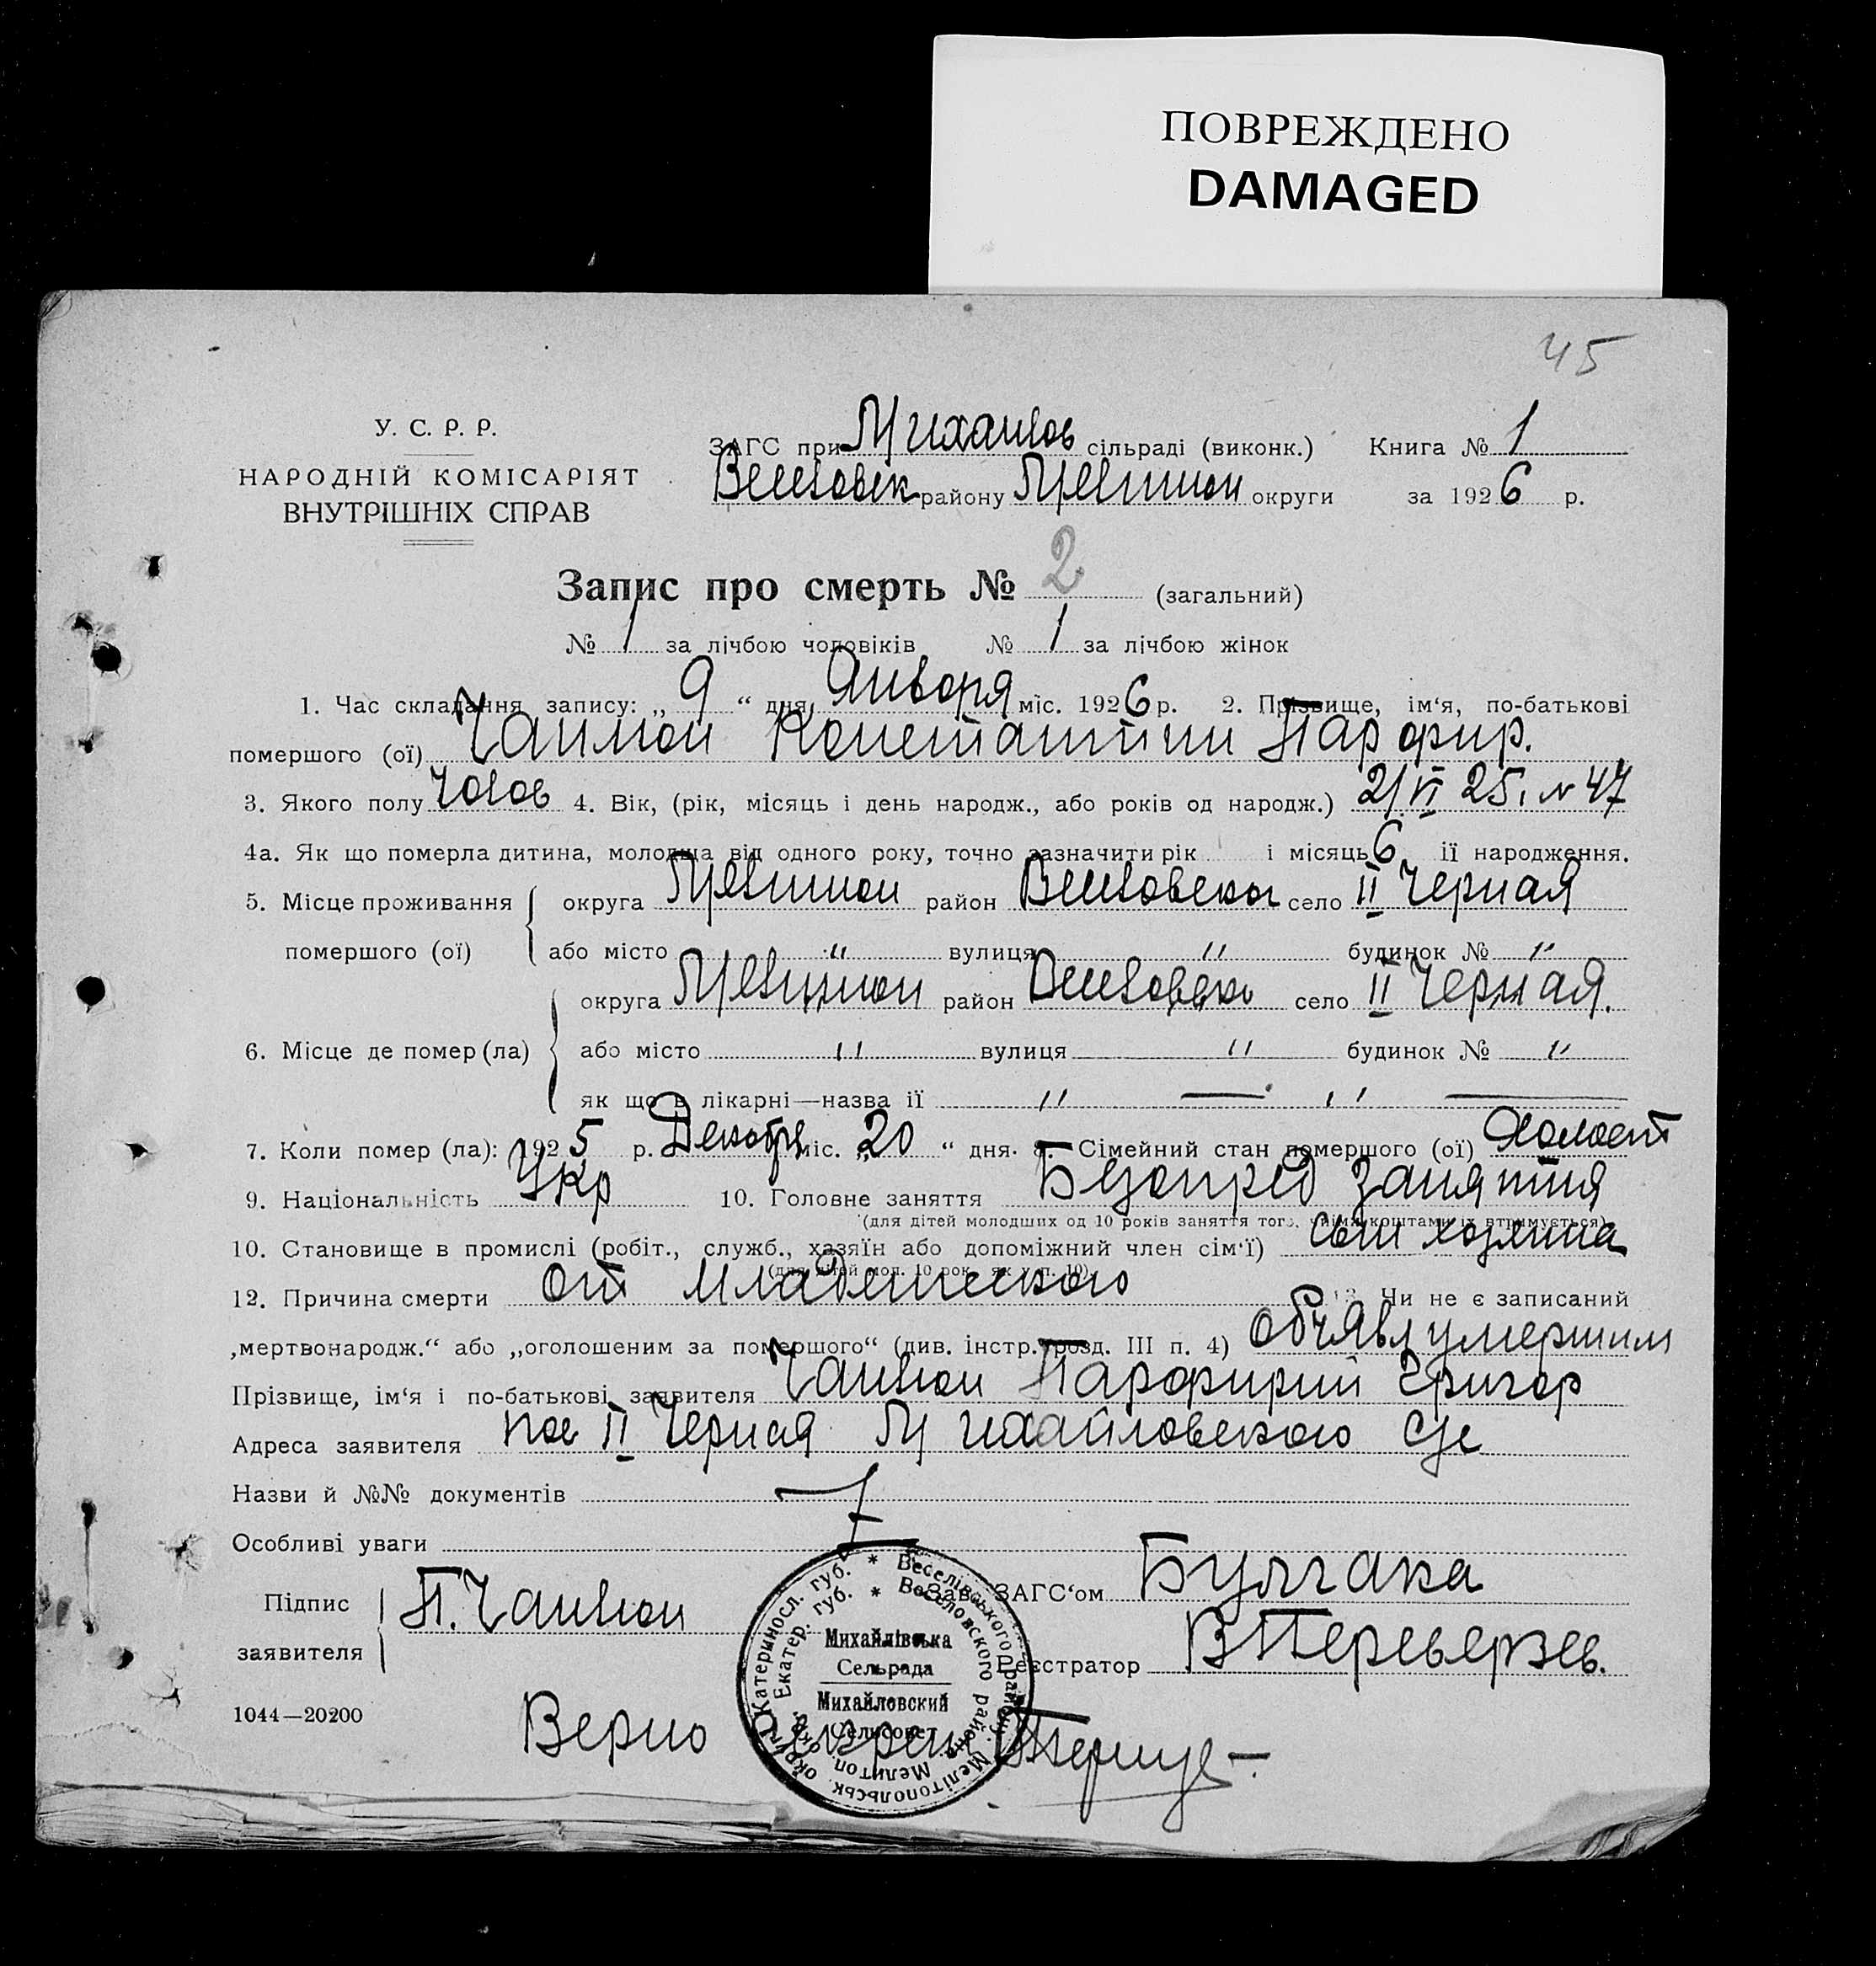 ПОВРЕЖДЕНО
DAMAGED
45
У. С. Р. Р.
НАРОДНІЙ КОМІСАРІЯТ
ВНУТРІШНІХ СПРАВ
ЗАГС при Михайлов сільраді (виконк.) Книга № 1
району округи за 1926 р.
Запис про смерть № 2 (загальний)
№ 1 за лічбою чоловіків № 1 за лічбою жінок
1. Час складання запису: „ 9 “ дня Января міс. 1926 р. 2. Прізвище, ім‘я, по-батькові
помершого (ої) Константин Парфир.
3. Якого полу Чолов 4. Вік, (рік, місяць і день народж., або років од народж.) 21/VI 25. № 47
4а. Як що померла дитина, молодща від одного року, точно зазначити рік і місяць 6 її народження.
5. Місце проживання округа район село II Черная
помершого (ої) або місто " вулиця " будинок № "
округа район село II Черная.
6. Місце де помер (ла) або місто " вулиця " будинок № "
як що в лікарні—назва її " — " —
7. Коли помер (ла): 1925 р. Декабря міс. „20 “ дня. 8. Сімейний стан помершого (ої) Холост
9. Національність Укр 10. Головне заняття занятия
(для дітей молодших од 10 років заняття того, чиїми коштами їх втримується)
10. Становище в промислі (робіт., служб., хазяїн або допоміжний член сім‘ї) сын хозяина
(для дітей мол. 10 рок. як у п. 10)
12. Причина смерти от младенческого 13. Чи не є записаний
„мертвонародж.“ або „оголошеним за помершого“ (див. інстр. розд. III п. 4) умершим
Прізвище, ім‘я і по-батькові заявителя Парфирий Григор
Адреса заявителя пос II Черная Михайловского с/с
Назви й №№ документів
Особливі уваги
Підпис
заявителя П.
Зав. ЗАГС‘ом Булгака
Реєстратор В Переверзев.
1044—20200
Верно
Катериносл. губ. * Веселівського району, Мелітопольськ. округи
Екатер. губ. * Веселовского района Мелитоп. окр.
Михайлівська
Сельрада
Михайловский
Сельсовет